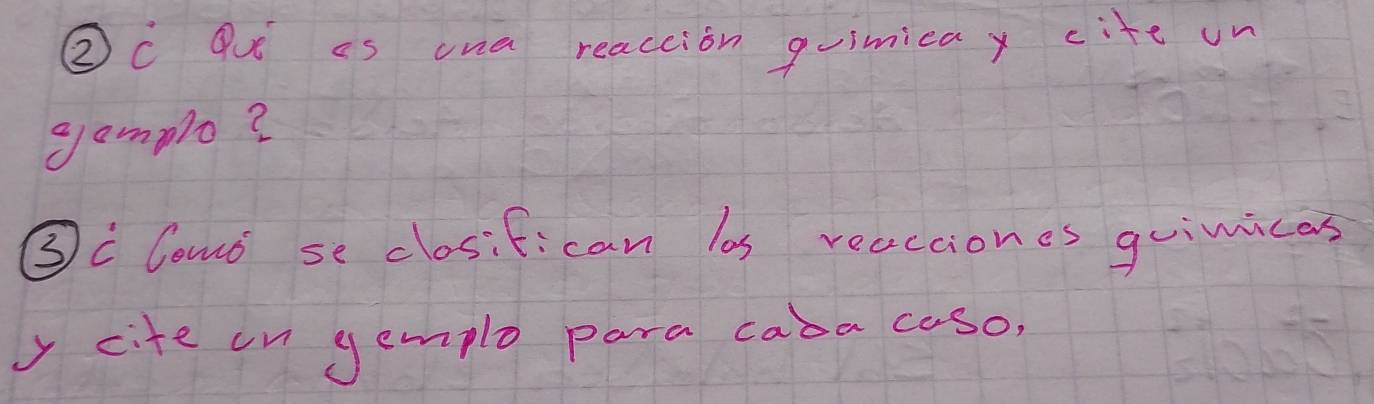 ② ¿ Qué es una reacción quimica y cite un
ejemplo?
③ ¿ Comó se clasifican las reacciones quimicas
y cite un ejemplo para caba caso,